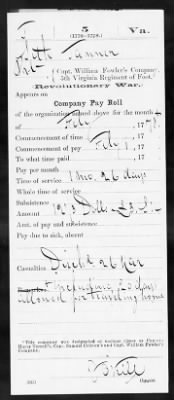 5 Va.
(1776-1778.)
Seth Tanner
Pvt { Capt. William Fowler's Company,
5th Virginia Regiment of Foot.*
Revolutionary War.
Appears on
Company Pay Roll
of the organization named above for the month
of Feby, 1778.
Commencement of time , 17
Commencement of pay Feby 1, 17
To what time paid , 17
Pay per month
Time of service 1 mo. 26 days
Whole time of service
Subsistence
Amount
Amt. of pay and subsistence
Pay due to sick, absent
Casualties Disch'd 26 Mar
including 20 days
allowed for traveling home
*This company was designated at various times as Captain
Company.
Copyist.